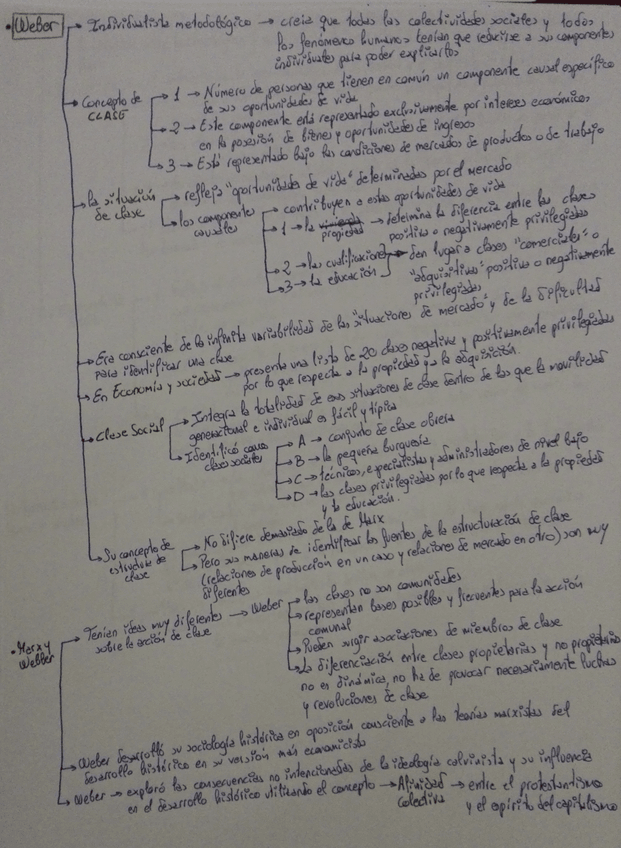 • Weber → Individualista metodológico → creía que todas las colectividades sociales y todos
los fenómenos humanos tenían que reducirse a sus componentes
individuales para poder explicarlos
→ Concepto de CLASE
→ 1 → Número de personas que tienen en común un componente causal específico
de sus oportunidades de vida
→ 2 → Este componente está representado exclusivamente por intereses económicos
en la posesión de bienes y oportunidades de ingresos
→ 3 → Está representado bajo las condiciones de mercados de productos o de trabajo
→ la situación de clase
→ refleja "oportunidades de vida" determinadas por el mercado
→ los componentes causales
→ contribuyen a estas oportunidades de vida
→ 1 → la propiedad → determina la diferencia entre las clases
positiva o negativamente privilegiadas
→ 2 → las cualificaciones
→ 3 → la educación
→ dan lugar a clases "comerciales" o
"adquisitivas" positiva o negativamente
privilegiadas
→ Era consciente de la infinita variabilidad de las situaciones de mercado y de la dificultad
para identificar una clase
→ En Economía y sociedad → presenta una lista de 20 clases negativa y positivamente privilegiadas
por lo que respecta a la propiedad y a la adquisición.
→ Clase Social
→ Integra la totalidad de esas situaciones de clase dentro de las que la movilidad
generacional e individual es fácil y típica
→ Identificó como clases sociales
→ A → conjunto de clase obrera
→ B → la pequeña burguesía
→ C → técnicos, especialistas y administradores de nivel bajo
→ D → las clases privilegiadas por lo que respecta a la propiedad
y la educación.
→ Su concepto de estructura de clase
→ No difiere demasiado de la de Marx
→ Pero sus maneras de identificar las fuentes de la estructuración de clase
(relaciones de producción en un caso y relaciones de mercado en otro) son muy
diferentes
• Marx y Webber
→ Tenían ideas muy diferentes sobre la acción de clase → Weber
→ las clases no son comunidades
→ representan bases posibles y frecuentes para la acción
comunal
→ Pueden surgir asociaciones de miembros de clase
→ La diferenciación entre clases propietarias y no propietarias
no es dinámica, no ha de provocar necesariamente luchas
y revoluciones de clase
→ Weber desarrolló su sociología histórica en oposición consciente a las teorías marxistas del
desarrollo histórico en su versión más economicista
→ Weber → exploró las consecuencias no intencionadas de la ideología calvinista y su influencia
en el desarrollo histórico utilizando el concepto → Afinidad colectiva → entre el protestantismo
y el espíritu del capitalismo